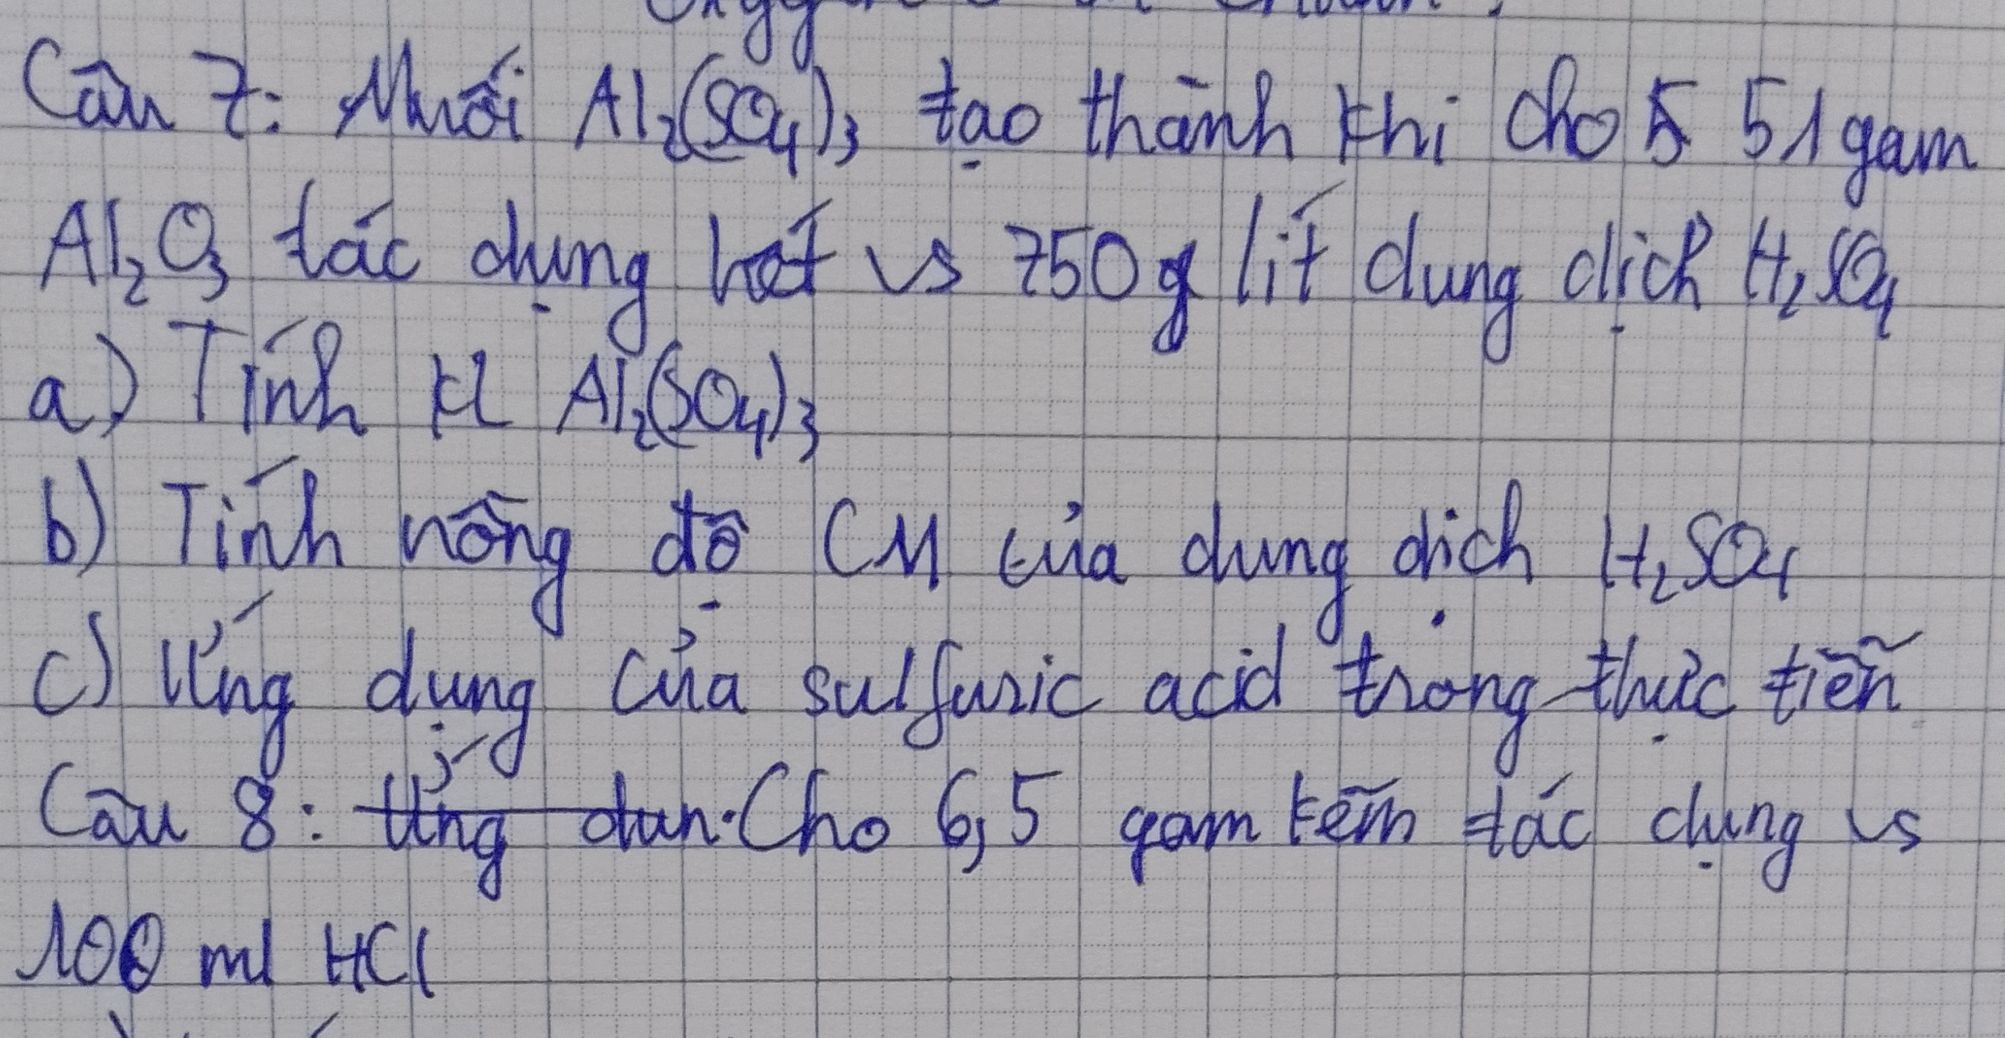 Câu 7: Muối Al₂(SO₄)₃ tạo thành khi cho 5 51 gam
Al₂O₃ tác dụng hết vs 750 g lít dung dịch H₂SO₄
a) Tính kl Al₂(SO₄)₃
b) Tính nồng độ CM của dung dịch H₂SO₄
c) Ứng dụng của sulfuric acid trong thực tiễn
Câu 8: Ứng dun. Cho 6,5 gam kẽm tác dụng vs
100 ml HCl